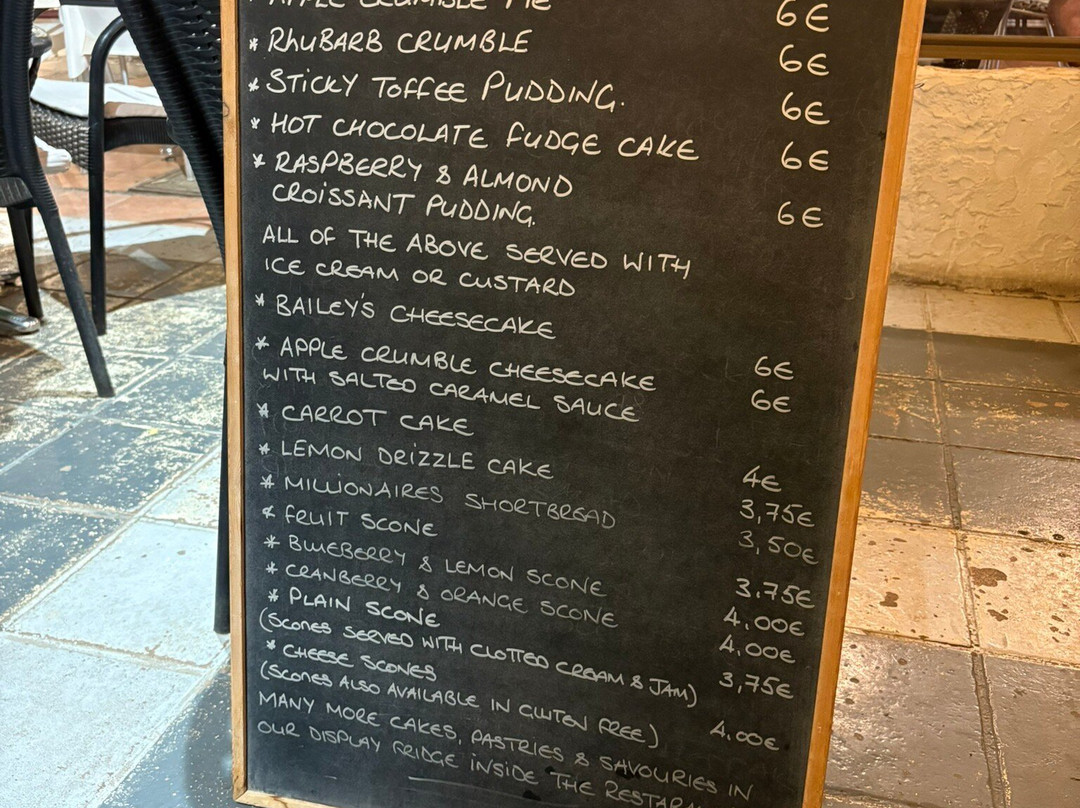 * APPLE CRUMBLE PIE 6€
* RHUBARB CRUMBLE 6€
* STICKY TOFFEE PUDDING. 6€
* HOT CHOCOLATE FUDGE CAKE 6€
* RASPBERRY & ALMOND
CROISSANT PUDDING. 6€
ALL OF THE ABOVE SERVED WITH
ICE CREAM OR CUSTARD
* BAILEY'S CHEESECAKE 6€
* APPLE CRUMBLE CHEESECAKE 6€
WITH SALTED CARAMEL SAUCE
* CARROT CAKE 4€
* LEMON DRIZZLE CAKE 3,75€
* MILLIONAIRES SHORTBREAD 3,50€
* FRUIT SCONE 3.75€
* BLUEBERRY & LEMON SCONE 4.00€
* CRANBERRY & ORANGE SCONE 4.00€
* PLAIN SCONE 3,75€
(SCONES SERVED WITH CLOTTED CREAM & JAM)
* CHEESE SCONES 4.00€
(SCONES ALSO AVAILABLE IN GLUTEN FREE)
MANY MORE CAKES, PASTRIES & SAVOURIES IN
OUR DISPLAY FRIDGE INSIDE THE